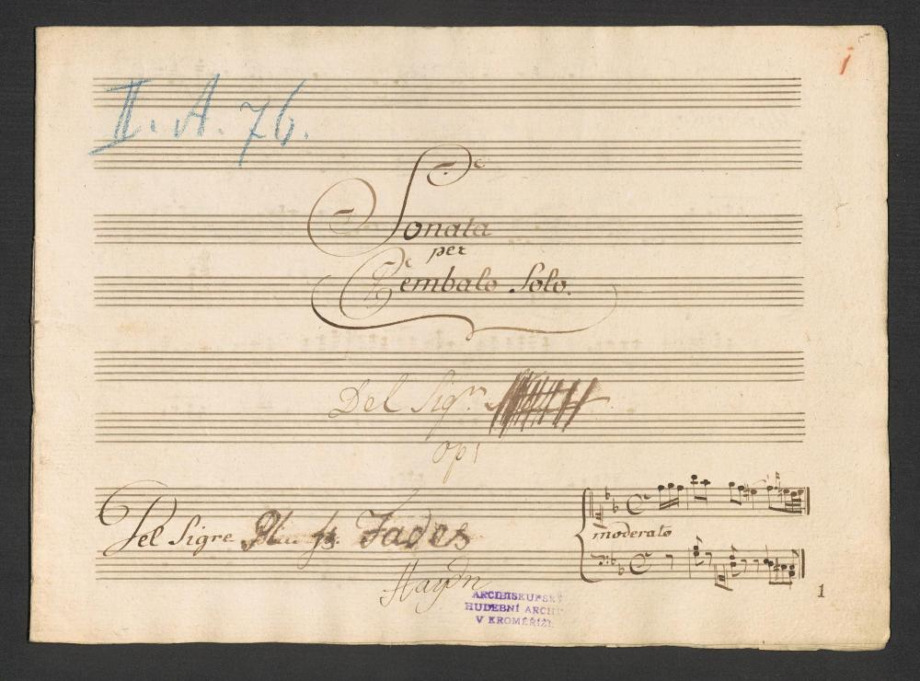 1
II. A. 76.
Sonata
per
Cembalo Solo.
Del Sigre
op 1
Del Sigre Fades
Haydn
moderato
ARCIBISKUPSKÝ
HUDEBNÍ ARCHIV
V KROMĚŘÍŽI.
1